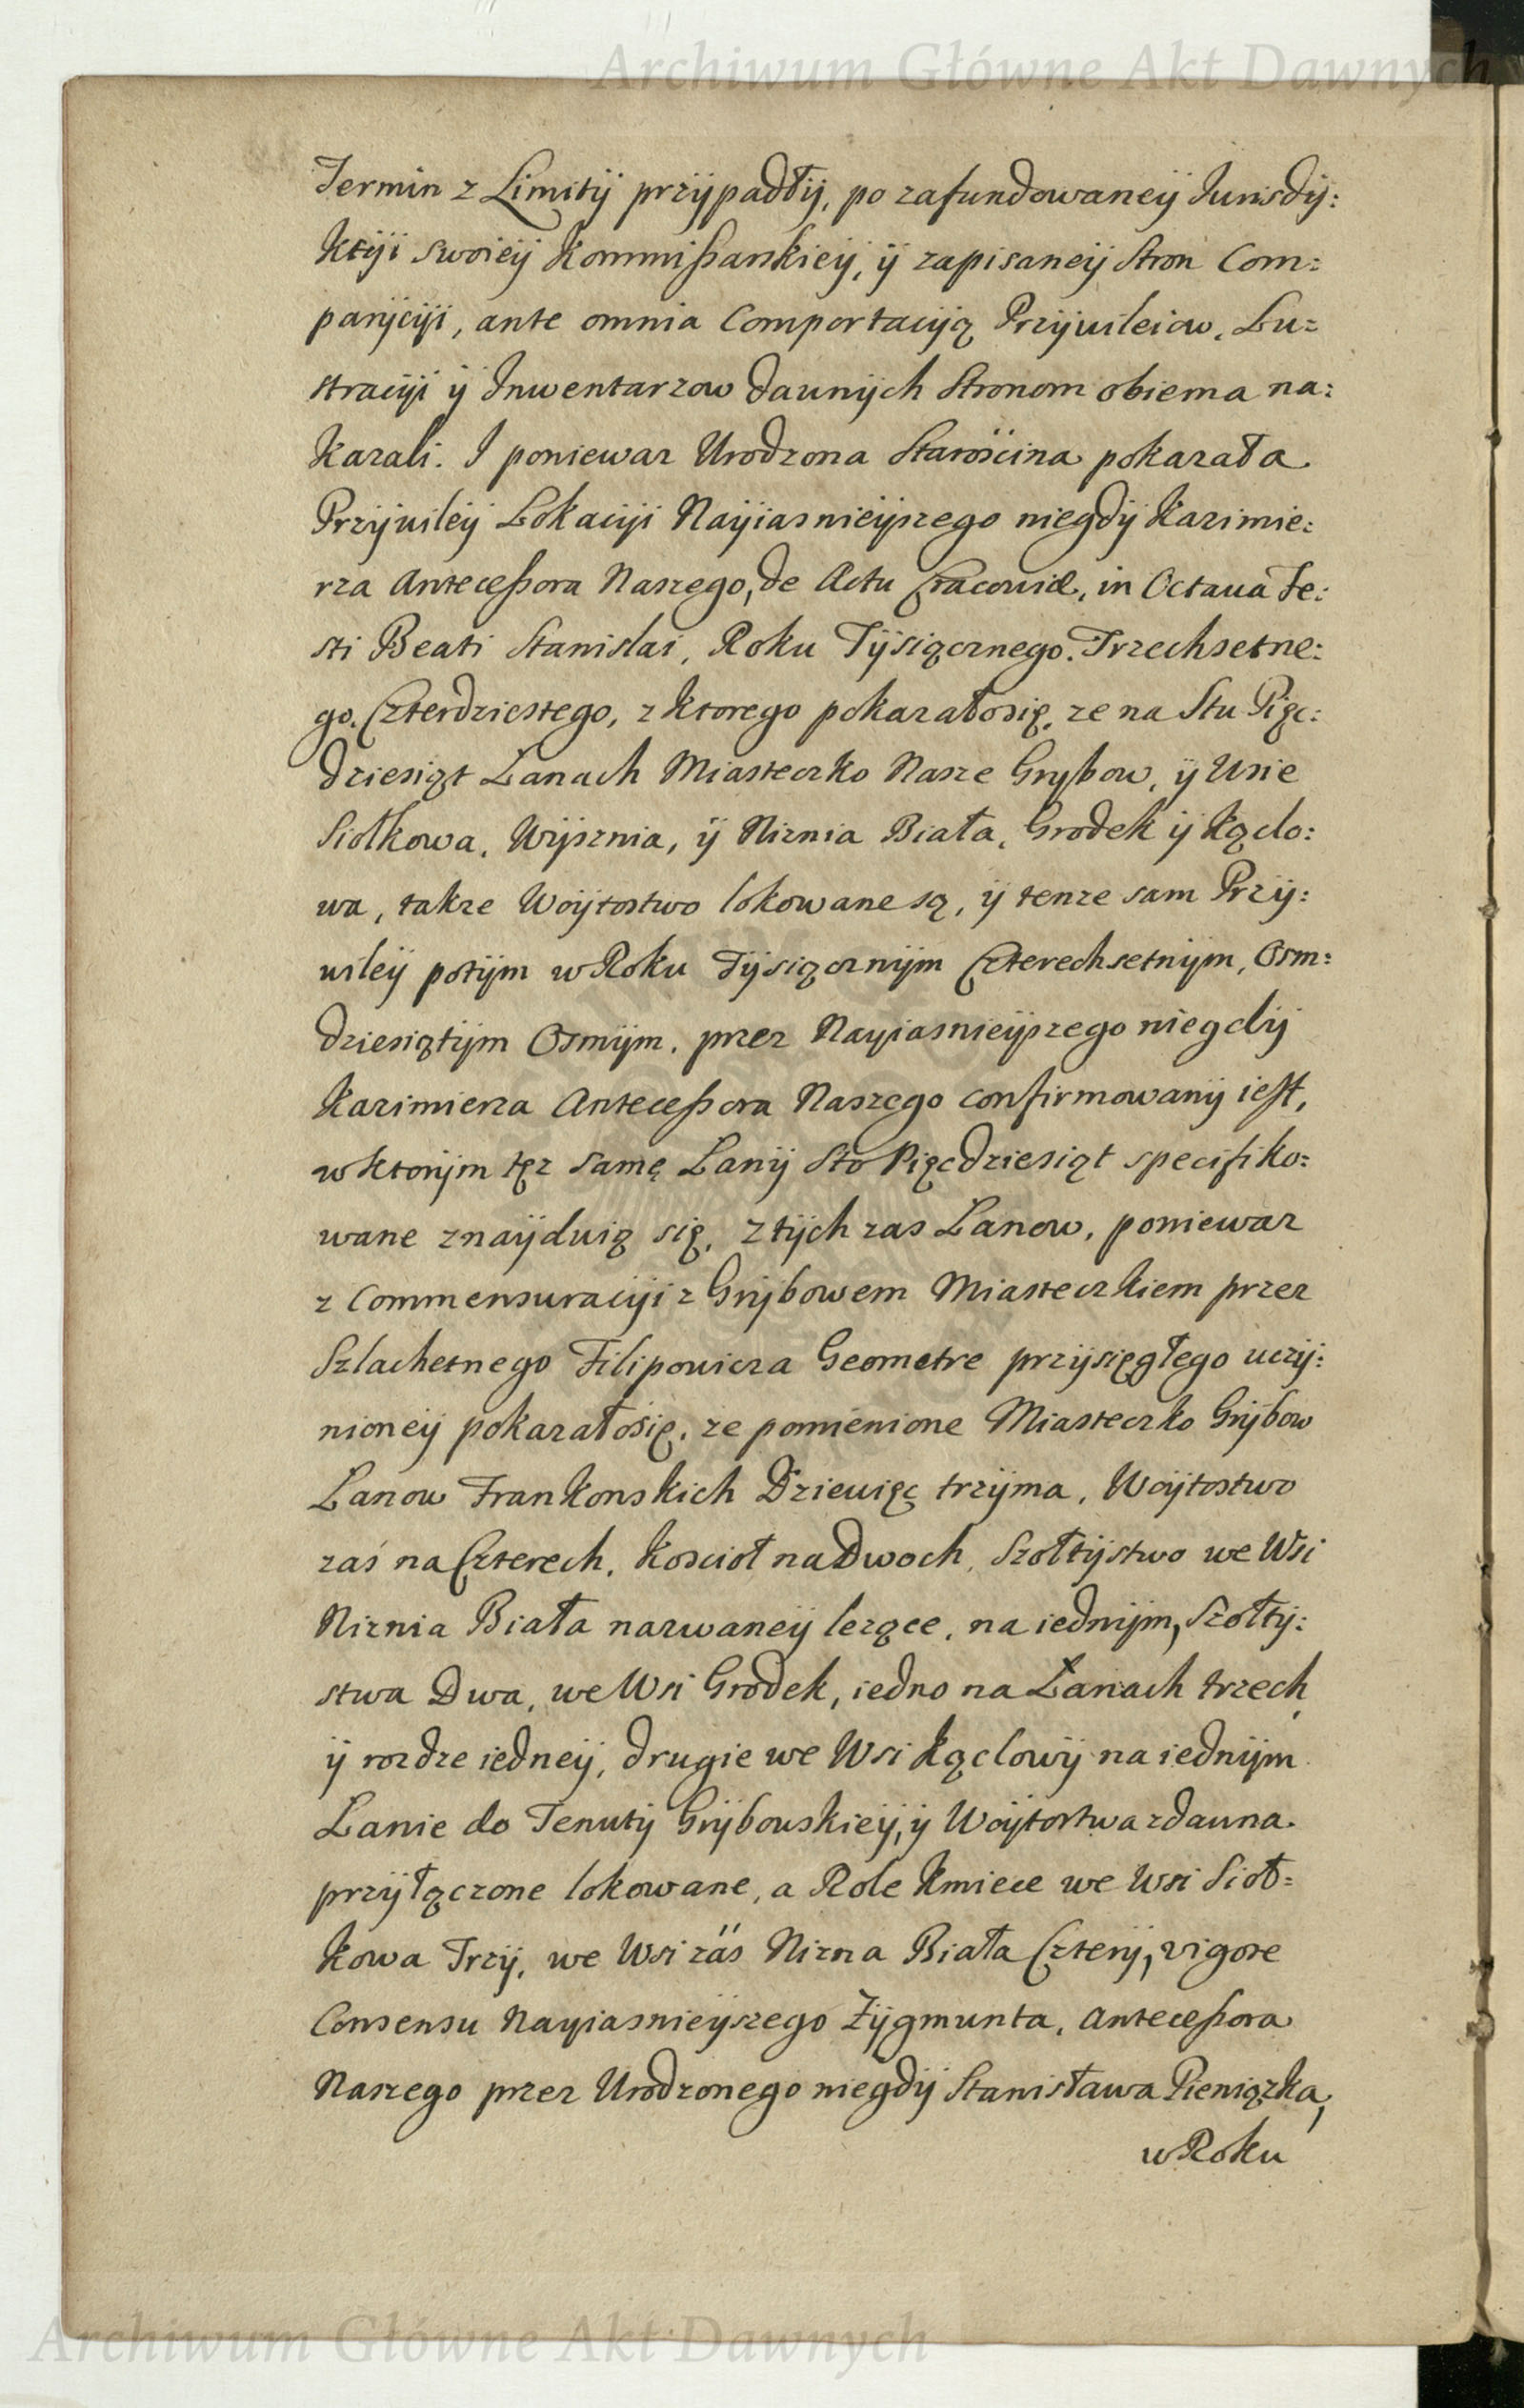 Archiwum Główne Akt Dawnych
Termin z Limity przypadły, po zafundowaney Jurisdy:
ktyji swoiey Kommißarskiey, y zapisaney Stron Com:
paryciji, ante omnia Comportacyją Przyuileiow, Lu=
straciji y Jnwentarzow daunych Stronom obiema na:
kazali. I poniewaz Urodzona Starościna pokazała
Przyuiley Lokaciji Nayiasnieyszego niegdy Kazimie:
rza Anteceßora Naszego, de Actu Cracouiæ, in Octaua Fe:
sti Beati Stanislai, Roku Tysiącznego. Trzechsetne:
go. Czterdziestego, z ktorego pokazałosię, ze na Stu Pięc:
dziesiąt Lanach Miasteczko Nasze Grybow, y Wsie
Siołkowa, Wysznia, y Niznia Biała, Grodek y Kąclo:
wa, takze Woytostwo lokowane są, y tenze sam Przy:
uiley potym w Roku Tysiącznym Czterechsetnym, Osm:
dziesiątym Osmym, przez Nayiasnieyszego niegdy
Kazimierza Anteceßora Naszego confirmowany iest,
w ktorym tęz samę Lany Sto Pięcdziesiąt specifiko:
wane znayduią się, z tych zas Lanow, poniewaz
z Commensuraciji z Grybowem Miasteczkiem przez
Szlachetnego Filipouicza Geometre przysięgłego uczy:
nioney pokazałosię, ze pomienione Miasteczko Grybow
Lanow Frankonskich Dziewięc trzyma, Woytostwo
zaś na Czterech, Koscioł na Dwoch, Szołtystwo we Wsi
Niznia Biała nazwaney lezące, na iednym, Szołty:
stwa Dwa, we Wsi Grodek, iedno na Lanach trzech
y rozdze iedney, drugie we Wsi Kąclowy na iednym
Lanie do Tenuty Grybouskiey, y Woytostwa zdauna
przyłączone lokowane, a Role Kmiece we Wsi Sioł=
kowa Trzy, we Wsi zás Nizna Biała Cztery, vigore
Consensu Nayiasnieyszego Zygmunta, Anteceßora
Naszego przez Urodzonego niegdy Stanisława Pieniązka,
w Roku
Archiwum Główne Akt Dawnych